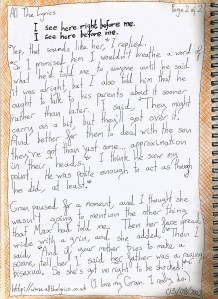 All The Lyrics
Page 2 of 2
I see here right before me.
I see here before me.
"Yep, that sounds like her," I replied.
"So I promised him I wouldn't breathe a word of
what he'd told me to anyone until he said
it was alright but I also told him that he
ought to talk to his parents about it sooner
rather than later," I said, "They might
carry on a bit but they'll get over it.
And better for them to deal with the son
they've got than just some approximation
in their heads." I think he saw my
point. He was polite enough to act as though
he did, at least."
Gran paused for a moment, and I thought she
wasn't going to mention the other thing
that Max had told me. Then her face spread
wide with a grin, and she added "Then I
said, 'And if your mother tries to make a
scene, tell her I said her father was a raging
bisexual. So she's got no right to be shocked.'"
(I love my Gran. I really do.)
http://www.allthelyrics.co.uk